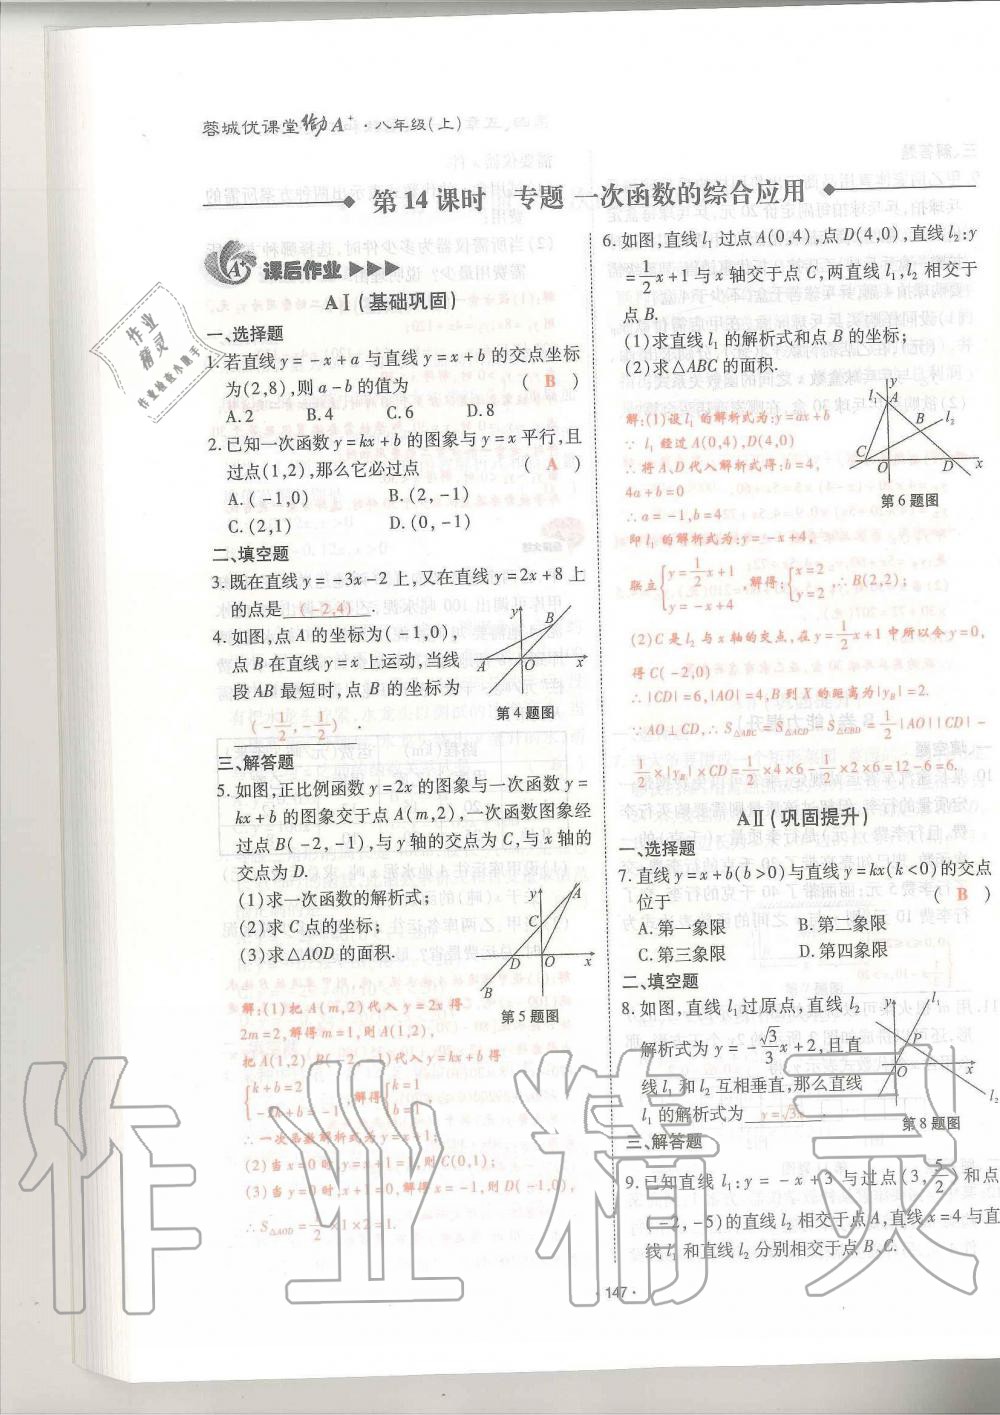 蓉城优课堂给力A⁺·八年级(上)
第14课时 专题 一次函数的综合应用
A⁺ 课后作业
AⅠ(基础巩固)
一、选择题
1.若直线y=-x+a与直线y=x+b的交点坐标
为(2,8),则a-b的值为 ( B )
A.2 B.4 C.6 D.8
2.已知一次函数y=kx+b的图象与y=x平行,且
过点(1,2),那么它必过点 ( A )
A.(-1,0) B.(2,-1)
C.(2,1) D.(0,-1)
二、填空题
3.既在直线y=-3x-2上,又在直线y=2x+8上
的点是 (-2,4) .
4.如图,点A的坐标为(-1,0),
点B在直线y=x上运动,当线
段AB最短时,点B的坐标为
(-1/2,-1/2).
y B A O x
第4题图
三、解答题
5.如图,正比例函数y=2x的图象与一次函数y=
kx+b的图象交于点A(m,2),一次函数图象经
过点B(-2,-1),与y轴的交点为C,与x轴的
交点为D.
(1)求一次函数的解析式;
(2)求C点的坐标;
(3)求△AOD的面积.
y A C D O x B
第5题图
解:(1)把A(m,2)代入y=2x得
2m=2,解得m=1,则A(1,2),
把A(1,2)B(-2,-1)代入y=kx+b得
{k+b=2 -2k+b=-1,解得{k=1 b=1
∴一次函数解析式为y=x+1;
(2)当x=0时y=x+1=1,则C(0,1);
(3)当y=0时,x+1=0,解得x=-1,则D(-1,0),
∴S△AOD=1/2×1×2=1.
6.如图,直线l₁过点A(0,4),点D(4,0),直线l₂:y
=1/2x+1与x轴交于点C,两直线l₁,l₂相交于
点B.
(1)求直线l₁的解析式和点B的坐标;
(2)求△ABC的面积.
l₁ y A B l₂ C O D x
第6题图
解:(1)设l₁的解析式为:y=ax+b
∵l₁经过A(0,4),D(4,0)
∴将A,D代入解析式得:b=4,
4a+b=0
∴a=-1,b=4
即l₁的解析式为:y=-x+4,
联立{y=1/2x+1 y=-x+4,解得:{x=2 y=2,∴B(2,2);
(2)C是l₂与x轴的交点,在y=1/2x+1中所以令y=0,
得C(-2,0)
∴|CD|=6,|AO|=4,B到X的距离为|yB|=2.
∵AO⊥CD,∴S△ABC=S△ACD-S△CBD=1/2|AO||CD|-
1/2×|yB|×CD=1/2×4×6-1/2×2×6=12-6=6.
AⅡ(巩固提升)
一、选择题
7.直线y=x+b(b>0)与直线y=kx(k<0)的交点
位于 ( B )
A.第一象限 B.第二象限
C.第三象限 D.第四象限
二、填空题
8.如图,直线l₁过原点,直线l₂
解析式为y=-√3/3x+2,且直
线l₁和l₂互相垂直,那么直线
l₁的解析式为 y=√3x
y l₁ P O x l₂
第8题图
三、解答题
9.已知直线l₁:y=-x+3与过点(3,5/2)和点
-2,-5)的直线l₂相交于点A,直线x=4与直
线l₁和直线l₂分别相交于点B、C.
·147·
作业精灵
作业检查小助手
作业精灵